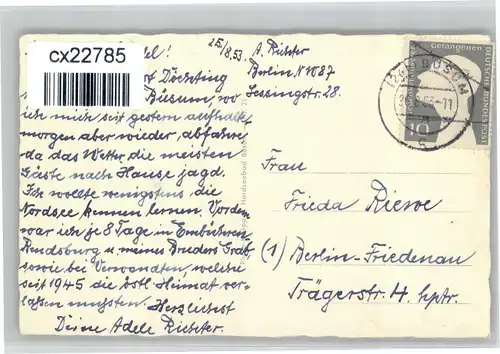 cx22785
25./8.53.
A. Richter
Berlin N 1087
Lessingstr. 28.
Döchting
Büsum, wo
ich mich seit gestern aufhalte,
morgen aber wieder abfahre,
da das Wetter die meisten
Gäste nach Hause jagd.
Ich wollte wenigstens die
Nordsee kennen lernen. Vordem
war ich je 8 Tage in Embühren
Rendsburg u. meines Bruders Grab
sowie bei Verwandten, welche
seit 1945 die östl. Heimat ver-
lassen mussten. Herzlichst
Deine Adele Richter.
Gefangenen
DEUTSCHE BUNDESPOST
10
BÜSUM
Frau
Frieda Riewe
(1) Berlin-Friedenau
Trägerstr. 4. hptr.
Nordseebad